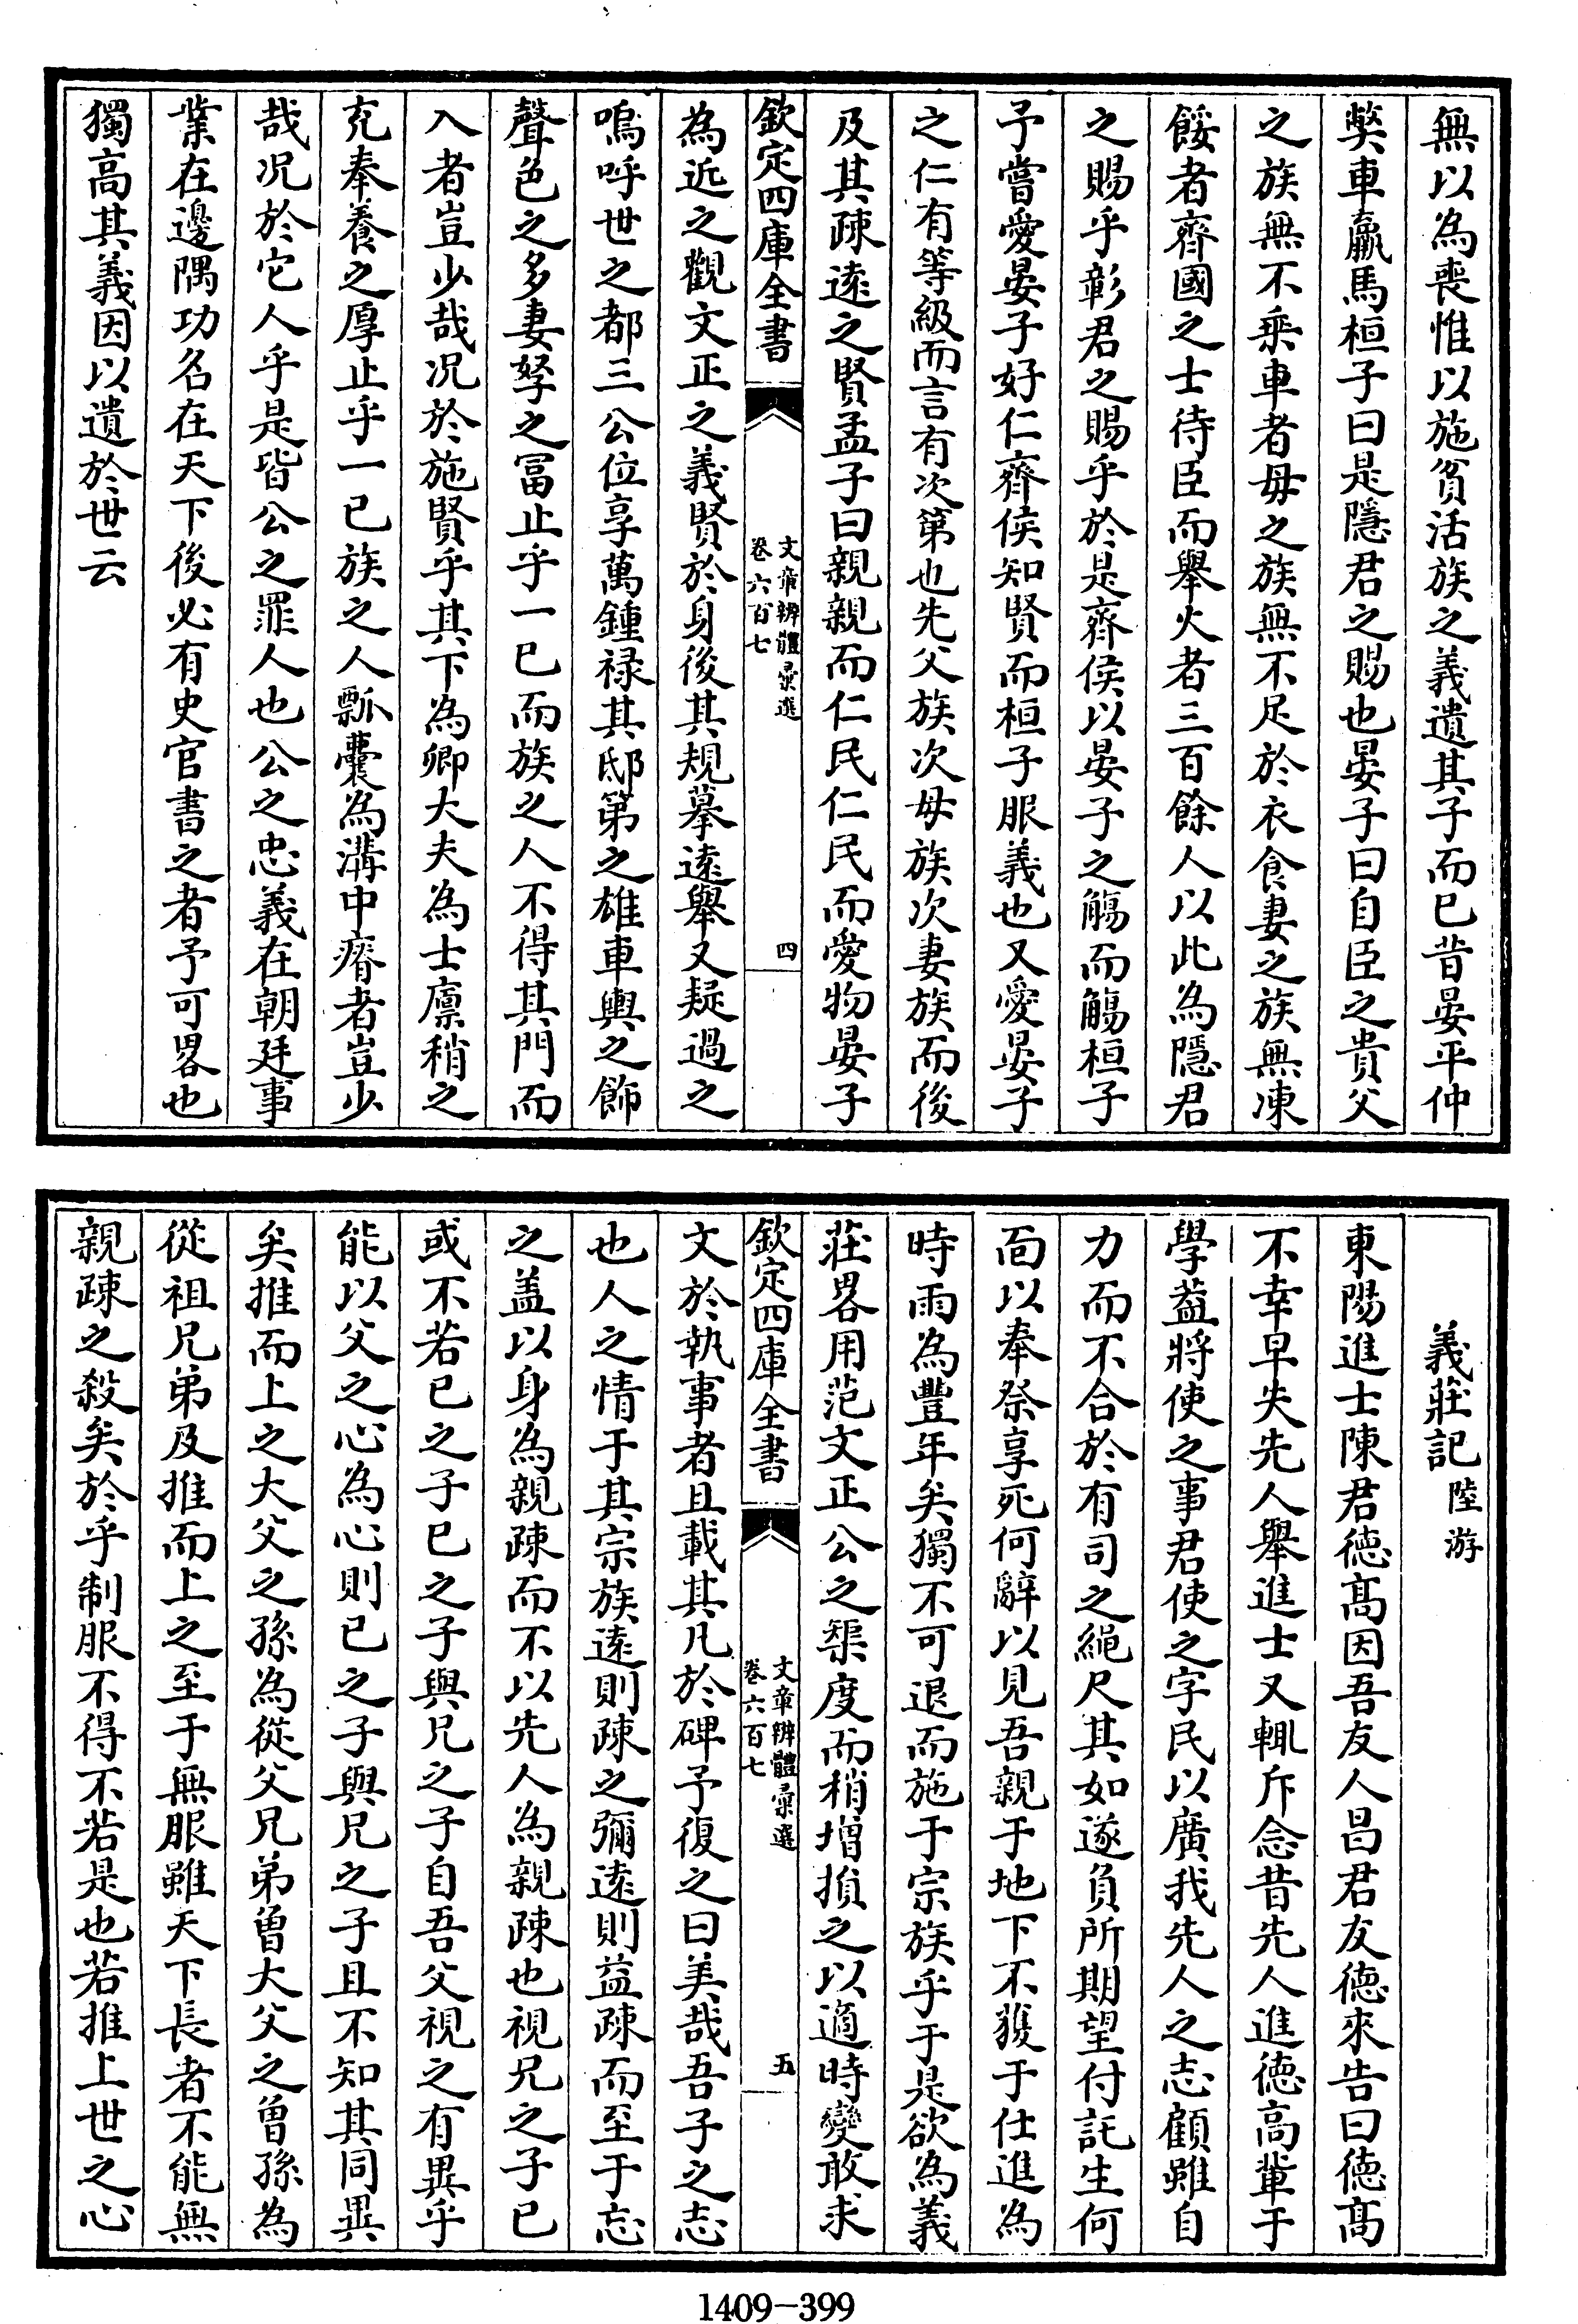 無以為喪惟以施貧活族之義遺其子而已昔晏平仲
弊車羸馬桓子曰是隱君之賜也晏子曰自臣之貴父
之族無不乘車者毋之族無不足於衣食妻之族無凍
餒者齊國之士待臣而舉火者三百餘人以此為隱君
之賜乎彰君之賜乎於是齊侯以晏子之觴而觴桓子
予嘗愛晏子好仁齊侯知賢而桓子服義也又愛晏子
之仁有等級而言有次第也先父族次母族次妻族而後
及其疎逺之賢孟子曰親親而仁民仁民而愛物晏子
欽定四庫全書
文章辨體彚選
卷六百七
四
為近之觀文正之義賢於身後其規摹逺舉又疑過之
嗚呼世之都三公位享萬鍾禄其邸第之雄車輿之飾
聲色之多妻孥之富止乎一已而族之人不得其門而
入者豈少哉况於施賢乎其下為卿大夫為士廩稍之
充奉養之厚止乎一已族之人瓢囊為溝中瘠者豈少
哉况於它人乎是皆公之罪人也公之忠義在朝廷事
業在邊隅功名在天下後必有史官書之者予可畧也
獨高其義因以遺於世云
義莊記 陸游
東陽進士陳君徳髙因吾友人昌君友徳來告曰徳髙
不幸早失先人舉進士又輒斥念昔先人進徳高軰于
學葢將使之事君使之字民以廣我先人之志顧雖自
力而不合於有司之繩尺其如遂負所期望付託生何
面以奉祭享死何辭以見吾親于地下不獲于仕進為
時雨為豐年矣獨不可退而施于宗族乎于是欲為義
莊畧用范文正公之榘度而稍増損之以適時變敢求
欽定四庫全書
文章辨體彚選
卷六百七
五
文於執事者且載其凡於碑予復之曰美哉吾子之志
也人之情于其宗族逺則疎之彌逺則益疎而至于忘
之盖以身為親疎而不以先人為親疎也視兄之子已
或不若已之子已之子與兄之子自吾父視之有異乎
能以父之心為心則已之子與兄之子且不知其同異
矣推而上之大父之孫為從父兄弟曽大父之曽孫為
從祖兄弟及推而上之至于無服雖天下長者不能無
親疎之殺矣於乎制服不得不若是也若推上世之心
1409-399